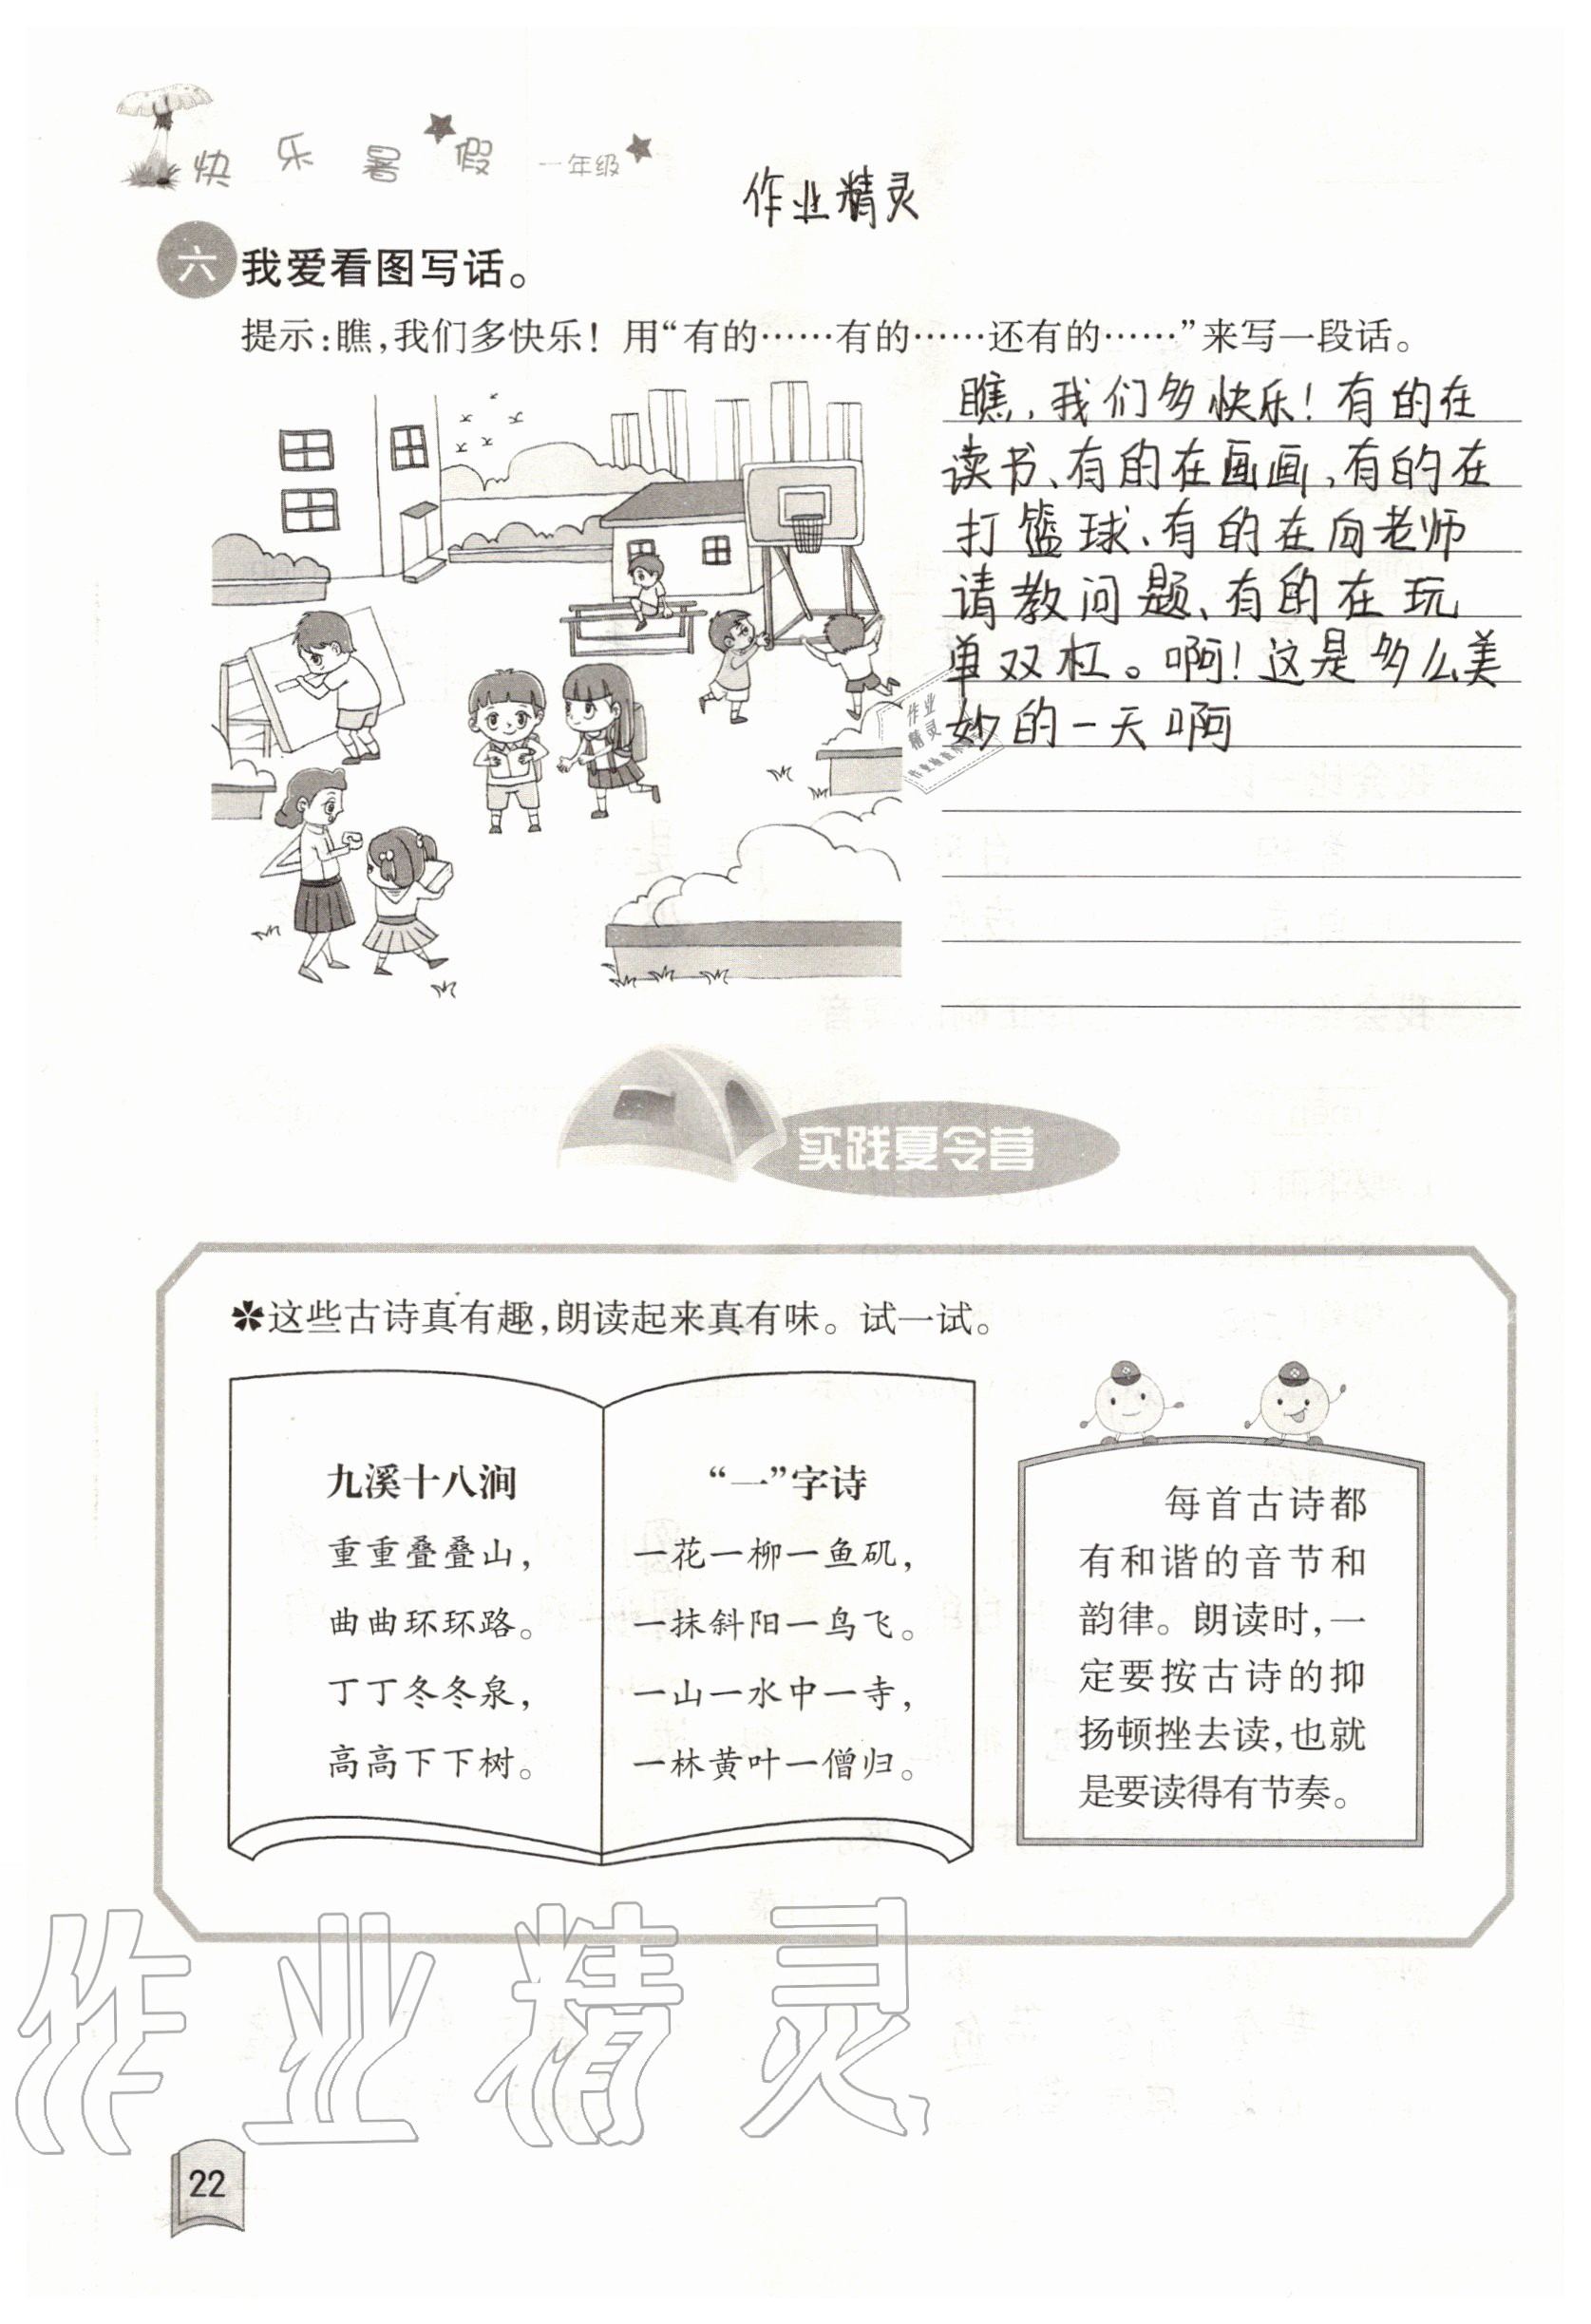 快乐暑假 一年级
作业精灵
六 我爱看图写话。
提示:瞧,我们多快乐! 用“有的……有的……还有的……”来写一段话。
瞧,我们多快乐!有的在
读书、有的在画画,有的在
打篮球、有的在向老师
请教问题、有的在玩
单双杠。啊!这是多么美
妙的一天啊
作业
精灵
实践夏令营
✽这些古诗真有趣,朗读起来真有味。试一试。
九溪十八涧
重重叠叠山,
曲曲环环路。
丁丁冬冬泉,
高高下下树。
“一”字诗
一花一柳一鱼矶,
一抹斜阳一鸟飞。
一山一水中一寺,
一林黄叶一僧归。
每首古诗都
有和谐的音节和
韵律。朗读时,一
定要按古诗的抑
扬顿挫去读,也就
是要读得有节奏。
作业精灵
22